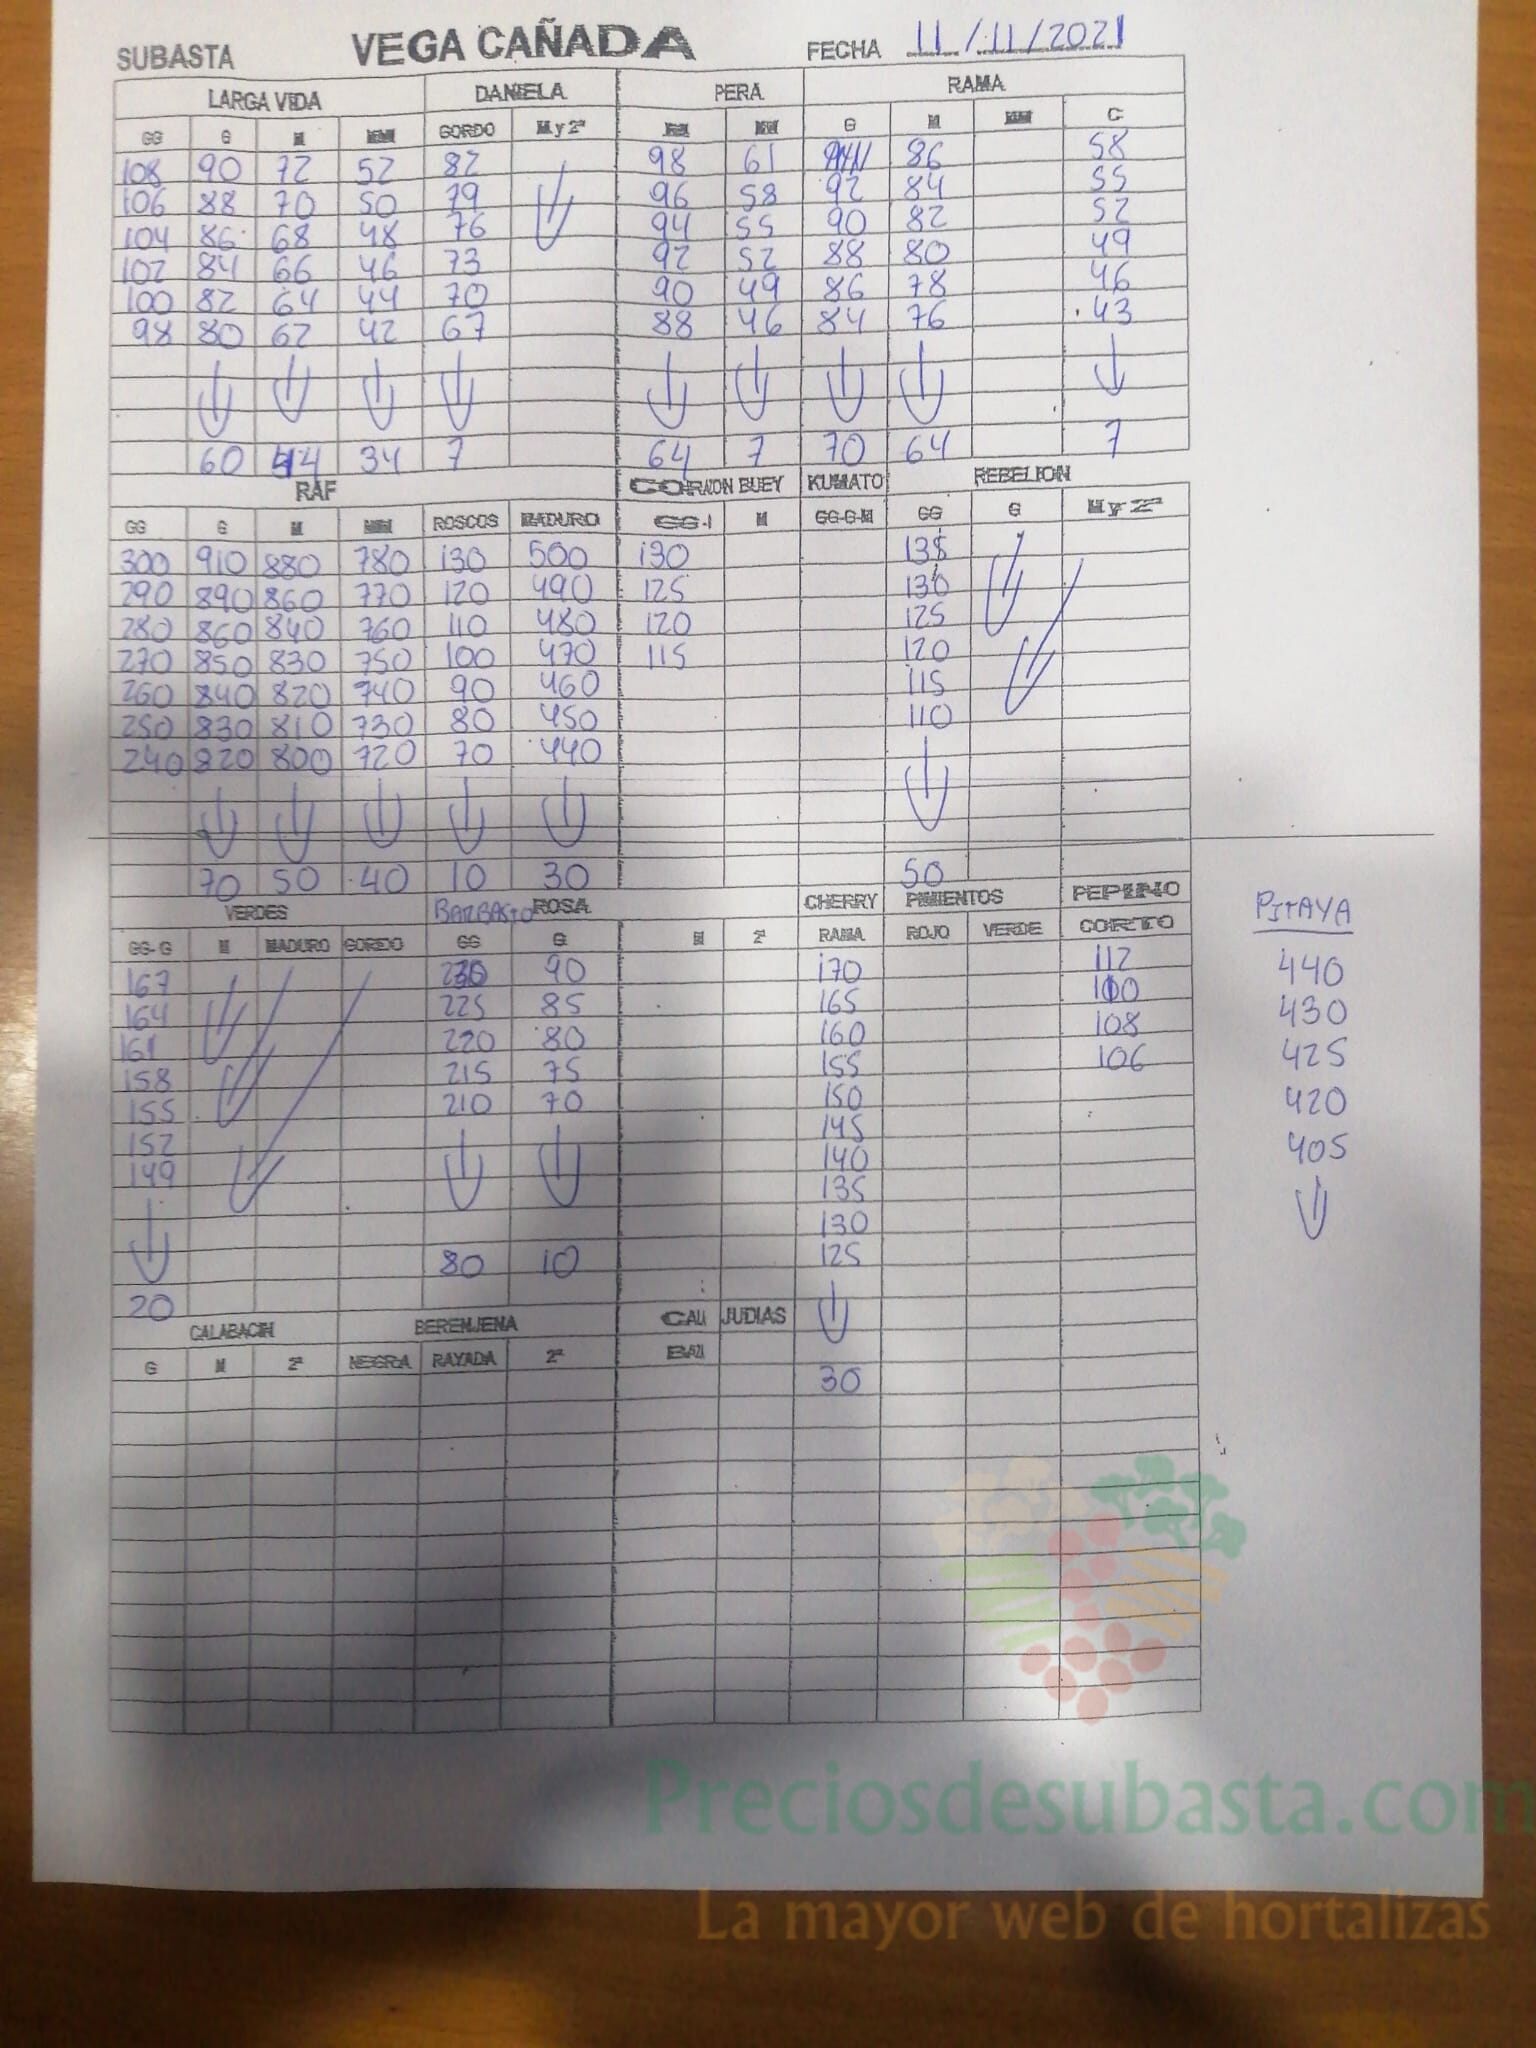 SUBASTA VEGA CAÑADA FECHA 11/11/2021
LARGA VIDA DANIELA PERA RAMA
GG G M MM GORDO M y 2ª M MM G M MM C
108 90 72 52 82 98 61 86 58
106 88 70 50 79 96 58 92 84 55
104 86 68 48 76 94 55 90 82 52
102 84 66 46 73 92 52 88 80 49
100 82 64 44 70 90 49 86 78 46
98 80 62 42 67 88 46 84 76 43
60 44 34 7 64 7 70 64 7
RAF CORAZON BUEY KUMATO REBELION
GG G M MM ROSCOS MADURO GG-I M GG-G-M GG G M y 2ª
300 910 880 780 130 500 130 135
290 890 860 770 120 490 125 130
280 860 840 760 110 480 120 125
270 850 830 750 100 470 115 120
260 840 820 740 90 460 115
250 830 810 730 80 450 110
240 820 800 720 70 440
70 50 40 10 30 50
VERDES BARBASTO ROSA CHERRY PIMIENTOS PEPINO
GG-G M MADURO GORDO GG G M 2ª RAMA ROJO VERDE CORTO
167 230 90 170 112
164 225 85 165 110
161 220 80 160 108
158 215 75 155 106
155 210 70 150
152 145
149 140
135
130
80 10 125
20
PITAYA
440
430
425
420
405
CALABACIN BERENJENA CALA JUDIAS
G M 2ª NEGRA RAYADA 2ª BAZA
30
Preciosdesubasta.com
La mayor web de hortalizas